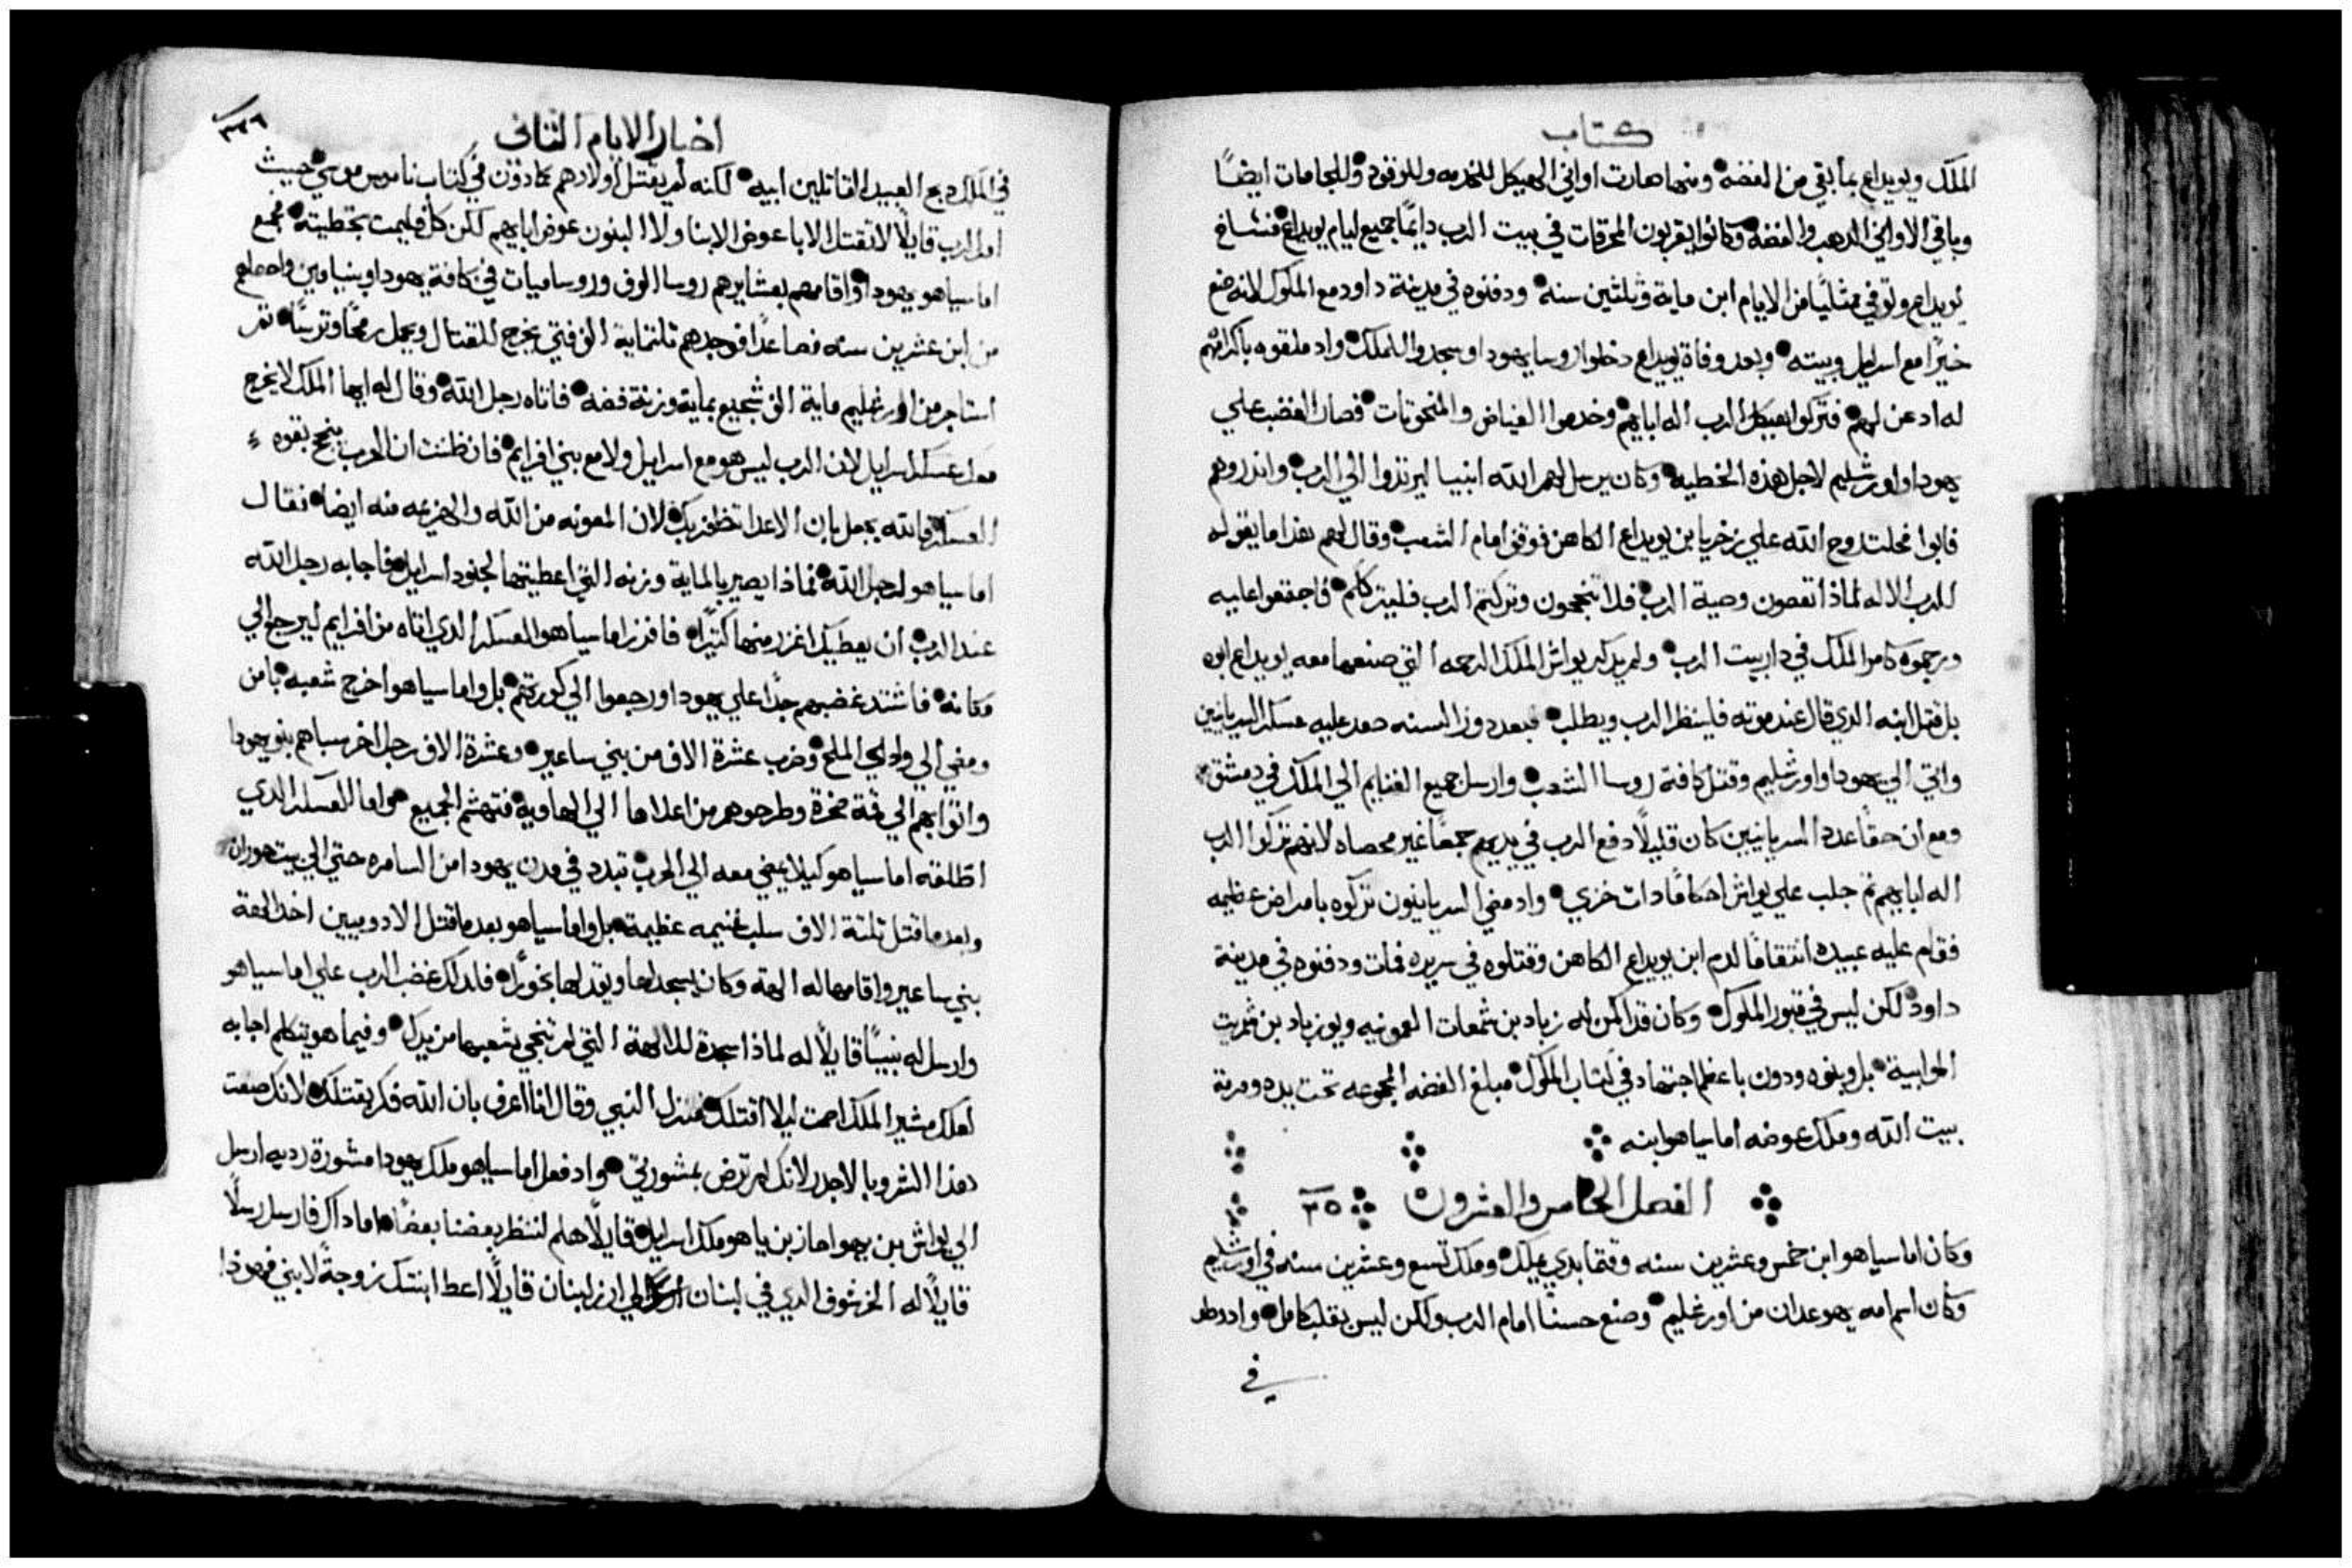 كتاب
الملك ويويداع بما بقي من الفضه ومنها صارت اواني الهيكل للخدمه وللوقود وللجامات ايضًا
وباقي الاواني الدهب والفضه وكانوا يقربون المحرقات في بيت الرب دايمًا جميع ايام يويداع فشاخ
يويداع وتوفي ممتليًا من الايام ابن ماية وثلثين سنه ودفنوه في مدينة داود مع الملوك لانه صنع
خيرًا مع اسرايل وبيته وبعد وفاة يويداع دخلوا روسا يهودا وسجدوا للملك واد ملقوه باكرامهم
له ادعن لهم فتركوا هيكل الرب اله ابايهم وخدموا الغياض والمنحوتات فصار الغضب علي
يهودا واورشليم لاجل هذه الخطيه وكان يرسل لهم الله انبيا ليرتدوا الي الرب واندروهم
فابوا فحلت روح الله علي زخريا بن يويداع الكاهن فوقف امام الشعب وقال لهم هذا ما يقوله
الرب الاله لماذا تعصون وصية الرب فلا تنجحون وتركتم الرب فليترككم فاجتمعوا عليه
ورجموه كامر الملك في دار بيت الرب ولم يدكر يواش الملك الرحمه التي صنعها معه يويداع ابوه
بل قتل ابنه الدي قال عند موته فلينظر الرب ويطلب فبعد دوز السنه صعد عليه عسكر السريانيين
واتي الي يهودا واورشليم وقتل كافة روسا الشعب وارسل جميع الغنايم الي الملك في دمشق
ومع ان حقًا عدد السريانيين كان قليلًا دفع الرب في يديهم جمعًا غير محصاه لانهم تركوا الرب
اله ابايهم ثم جلب علي يواش احكامًا دات خزي واد مضي السريانيون تركوه بامراض عظيمه
فقام عليه عبيده انتقامًا لدم ابن يويداع الكاهن وقتلوه في سريره فمات ودفنوه في مدينة
داود لكن ليس في قبور الملوك وكان قد اكمن له زباد بن شمعات العمونيه ويوزباد بن شمريت
الموابية بل وبنوه ودون باعظم اجتهاد في كتاب الملوك مبلغ الفضه المجموعه تحت يده ومرمة
بيت الله وملك عوضه اماسياهو ابنه
الفصل الخامس والعشرون ٢٥
وكان اماسياهو ابن خمس وعشرين سنه وقتما بدي يملك وملك تسع وعشرين سنه في اورشليم
وكان اسم امه يهوعدان من اورشليم وصنع حسنًا امام الرب ولكن ليس بقلب كامل واد وطد
في
اخبار الايام الثاني
في الملك دبح العبيد القاتلين ابيه لكنه لم يقتل اولادهم كما دون في كتاب ناموس موسي حيث
امر الرب قايلًا لا تقتل الابا عوض الابنا ولا البنون عوض ابايهم لكن كل فليمت بخطيته فجمع
اماسياهو يهودا واقامهم بعشايرهم روسا الوف وروسا ميات في كافة يهودا وبنيامين واحصاهم
من ابن عشرين سنه فصاعدًا فوجدهم تلتماية الف فتي يخرج للقتال ويحمل رمحًا وترسًا ثم
استاجر من اسرايل ماية الف شجيع بماية وزنة فضه فاتاه رجل الله وقال له ايها الملك لا يخرج
معك عسكر اسرايل لان الرب ليس هو مع اسرايل ولا مع بني افرايم فان ظننت ان الحرب ينجح بقوه
العسكر فالله يجعل بان الاعدا تظفر بك لان المعونه من الله والهزيمه منه ايضا فقال
اماسياهو لرجل الله فماذا يصير بالماية وزنه التي اعطيتها لجنود اسرايل فاجابه رجل الله
عند الرب ان يعطيك اغزر منها كتيرًا فافرز اماسياهو العسكر الدي اتاه من افرايم ليرجع الي
مكانه فاشتد غضبهم جدًا علي يهودا ورجعوا الي كورتهم بل واماسياهو اخرج شعبه بامن
ومضي الي وادي الملح وضرب عشرة الاف من بني ساعير وعشرة الاف رجل اخر سباهم بنو يهودا
واتوا بهم الي قمة صخرة وطرحوهم من اعلاها الي الهاويه فتهشم الجميع واما العسكر الدي
اطلقه اماسياهو كيلا يمضي معه الي الحرب تبدد في مدن يهودا من السامره حتي الي بيت حوران
وبعد ما قتل تلتة الاف سلب غنيمه عظيمة بل واماسياهو بعد ما قتل الادوميين اخد الهة
بني ساعير واقامها له الهة وكان يسجد لها ويقد لها بخورًا فلدلك غضب الرب علي اماسياهو
وارسل له نبيًا قايلًا له لماذا سجدة للالهة التي لم تنجي شعبها من يدك وفيما هو يتكلم اجابه
لعلك مشير الملك اصمت ليلا اقتلك فنزل النبي وقال انا اعرف بان الله فكر بقتلك لانك صنعت
هذا الشر وبالاجدر لانك لم ترض بمشورتي واد فعل اماسياهو ملك يهودا مشورة رديه ارسل
الي يواش بن يهواحاز بن ياهو ملك اسرايل قايلًا هلم لننظر بعضنا بعضًا اما داك فارسل رسلًا
قايلًا له الخرشوف الدي في لبنان ارسل الي ارز لبنان قايلًا اعط ابنتك زوجةً لابني فهودا